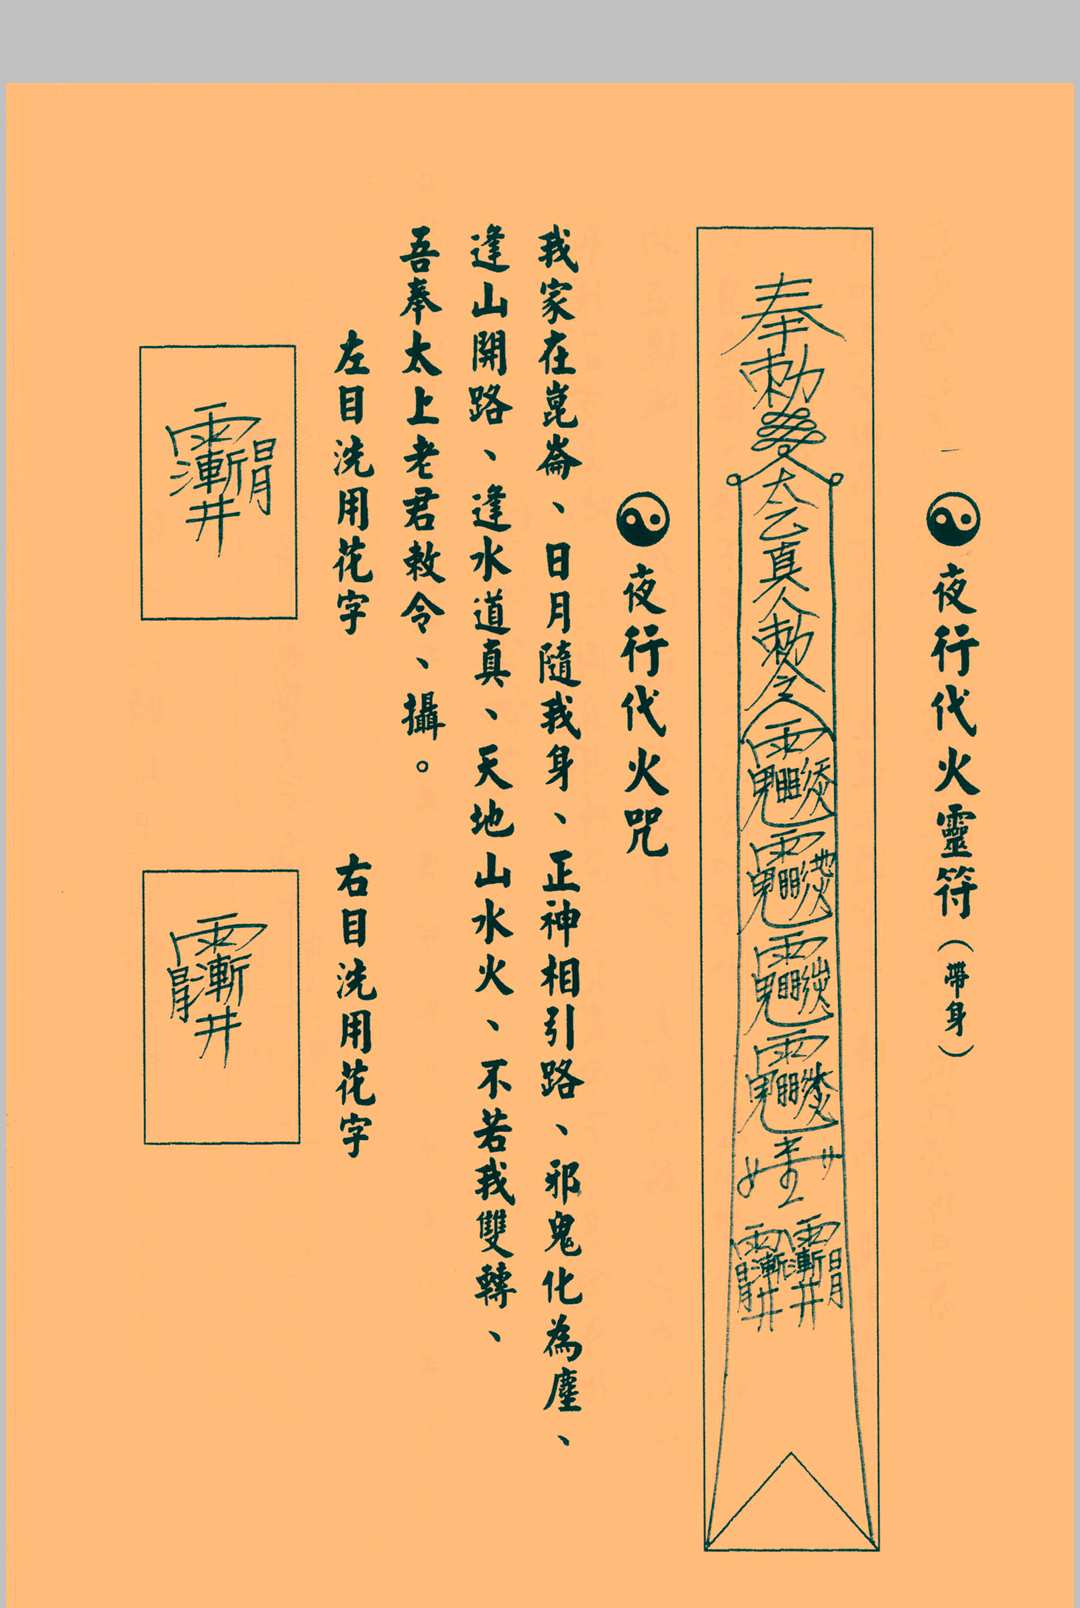 夜行代火靈符(帶身)
奉勅
太乙真人勅令
夜行代火咒
我家在崑崙、日月隨我身、正神相引路、邪鬼化為塵、
逢山開路、逢水道真、天地山水火、不若我雙轉、
吾奉太上老君敕令、攝。
左目洗用花字
右目洗用花字